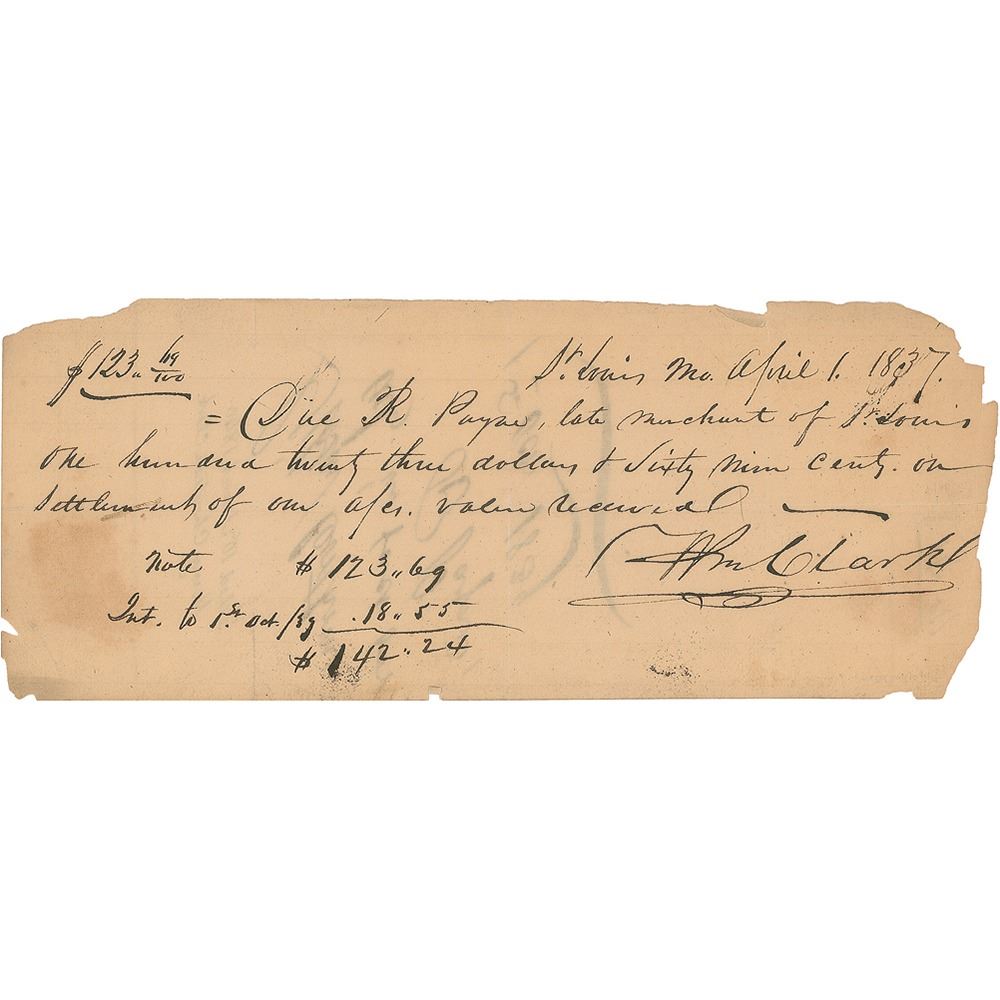 $123 " 69/100 St. Louis Mo. April 1. 1837.
= Due R. Payne, late merchant of St. Louis
One hundred twenty three dollars & Sixty nine cents. on
settlement of our a/cs. value received
Wm Clark
Note $ 123 " 69
Int. to 1st Oct /39 .18 " 55
$ 142 " 24